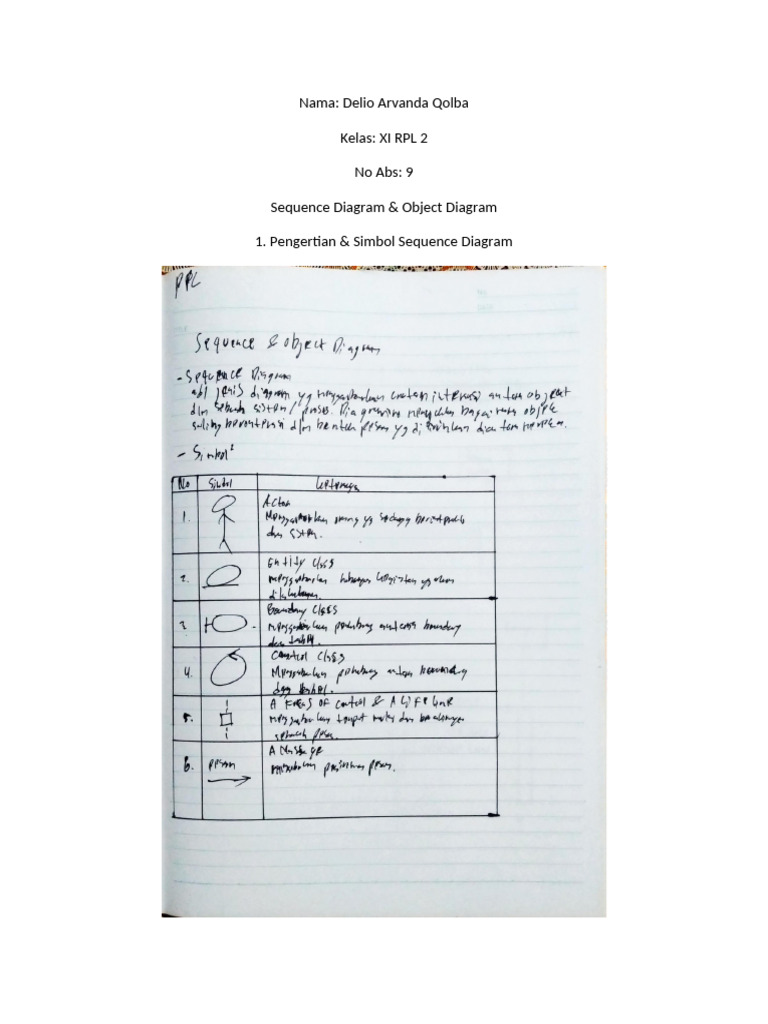 Nama: Delio Arvanda Qolba
Kelas: XI RPL 2
No Abs: 9
Sequence Diagram & Object Diagram
1. Pengertian & Simbol Sequence Diagram
RPL
Sequence & object Diagram
- Sequence Diagram
adl jenis diagram yg menggambarkan interaksi antara object
dlm sebuah sistem/proses. Diagram ini bagaimana objek
saling berinteraksi dlm bentuk pesan yg
- Simbol²
No Simbol
1. Actor
Menggambarkan orang yg sedang
dan sistem.
2. Entity Class
menggambarkan hubungan kegiatan yg akan
dilakukan.
3. Boundary Class
menggambarkan antara boundary
dan
4. Control Class
Menggambarkan penghubung antara boundary
dgn
5. A Focus of control & A Life Line
menggambarkan tempat mulai dan
sebuah pesan.
6. pesan A Message
pengiriman pesan.